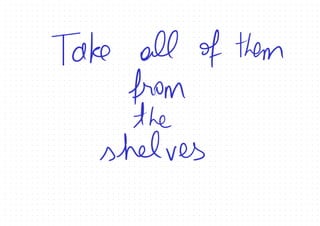 Take all of them
from
the
shelves